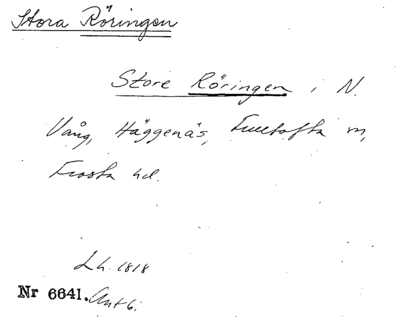 Stora Röringen
Store Röringen i N.
Vång, Häggenäs, Fulltofta m,
Frosta hd.
Lh. 1818
Nr 6641. Akt 6.